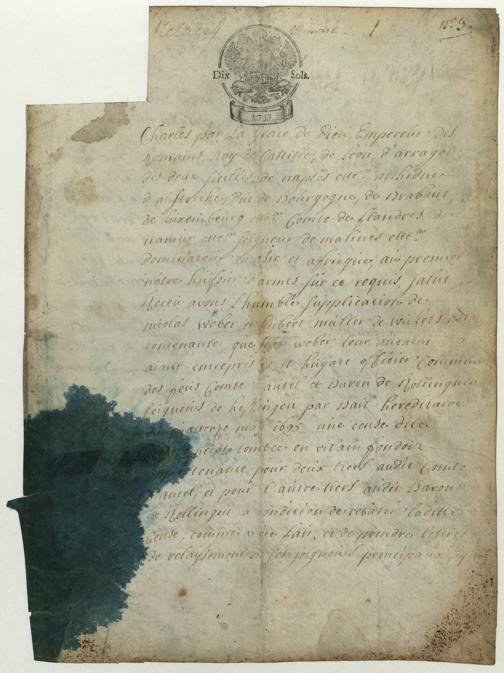 nro 3.
Dix Sols.
1737
Charles par La Grace de Dieu, Empereur des
Romains, Roy de Castille, de Leon, d'arragon
des deux Sicilles, de naples ettca archiducq
d'austriche, Duc de Bourgogne, de Brabant,
de Luxembourg ettca Comte de flandres de
namur ettca seigneur de malines ettca
dominateur en asie et affricque au premier
notre huissier d'armes sur ce requis salut
Receu avons L'humble supplication de
nicolas weber et hubert müller de
contenante que weber leur
aiant entrepris officier Commun
des Comte d'autel et Baron de Rollingen
seigneurs de heffingen par Bail hereditaire
may 1695 une cense dite
tombée en vilain fondoir
appartenante pour deux tiers audit Comte
d'autel, et pour l'autre tiers audit Baron
de Rollingen a condition de rebatir laditte
Cense, comme et de prendre lettres
de relaissement de seigneurs principaux